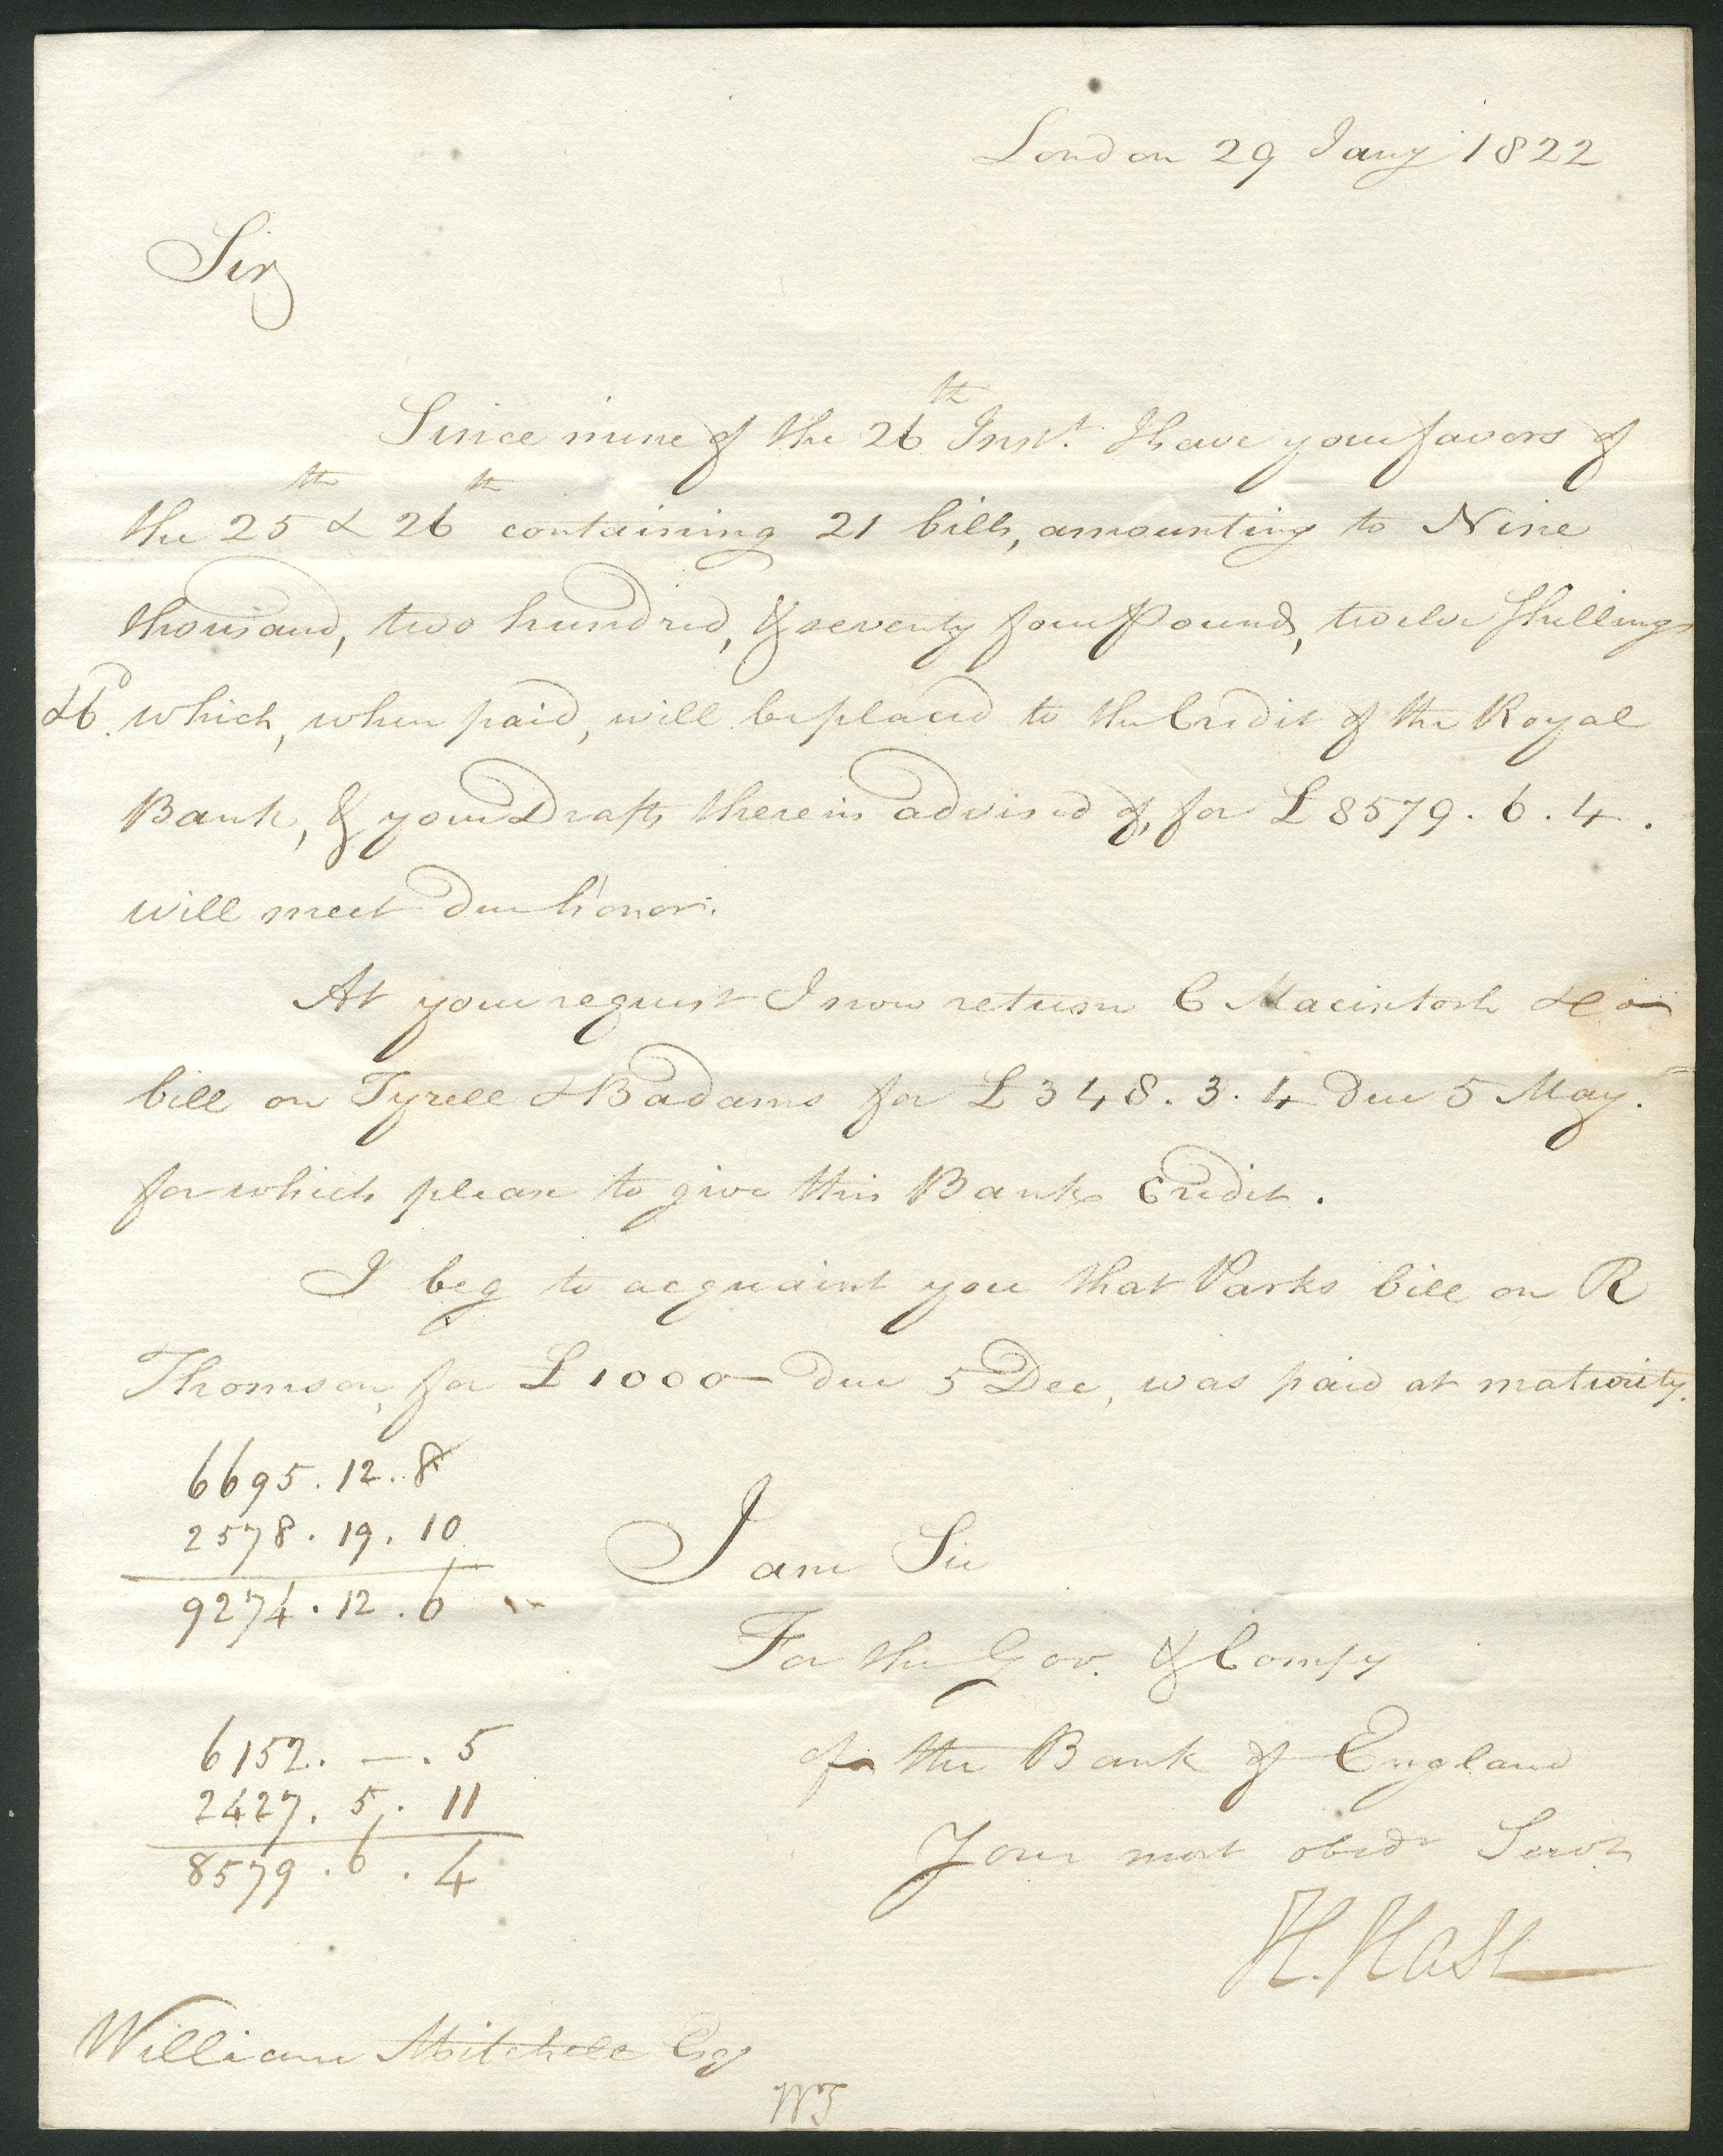 London 29 Jany 1822
Sir
Since mine of the 26th Inst. I have your favors of
the 25th & 26th containing 21 bills, amounting to Nine
thousand, two hundred, & seventy four Pounds, twelve Shillings
& 6d. which, when paid, will be placed to the Credit of the Royal
Bank, & your Drafts therein advised of, for £8579.6.4.
will meet due honor.
At your request I now return C Macintosh & Co
bill on Tyrell & Badams for £348.3.4 due 5 May.
for which please to give this Bank Credit.
I beg to acquaint you that Parks bill on R
Thomson, for £1000- due 5 Dec, was paid at maturity.
6695.12.8
2578.19.10
9274.12.6
I am Sir
For the Gov. & Compy
6152. — . 5
of the Bank of England
2427. 5. 11
8579. 6. 4
Your most obedt Servt
H. Hase
William Mitchell Esq